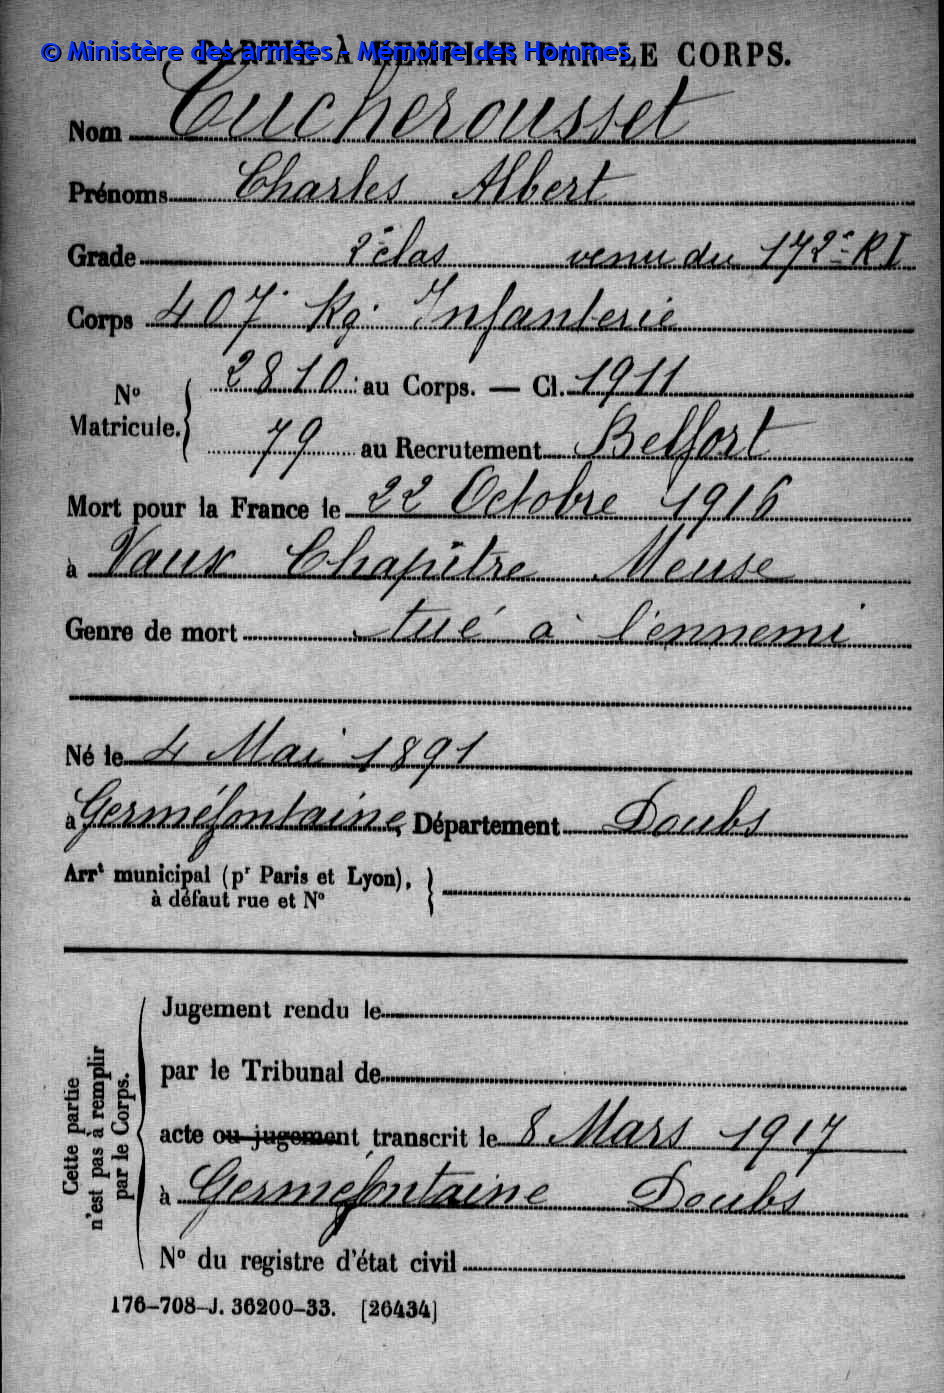 © Ministère des armées - Mémoire des Hommes
PARTIE À REMPLIR PAR LE CORPS.
Nom Cucherousset
Prénoms Charles Albert
Grade 2e clas venu du 172e RI
Corps 407e Rg. Infanterie
No Matricule. { 2810 au Corps. — Cl. 1911
79 au Recrutement Belfort
Mort pour la France le 22 Octobre 1916
à Vaux Chapître Meuse
Genre de mort tué à l'ennemi
Né le 4 Mai 1891
à Germéfontaine Département Doubs
Arrt municipal (pr Paris et Lyon),
à défaut rue et No
Cette partie
n'est pas à remplir
par le Corps.
Jugement rendu le
par le Tribunal de
acte ou jugement transcrit le 8 Mars 1917
à Germéfontaine Doubs
No du registre d'état civil
176-708-J. 36200-33. [26434]